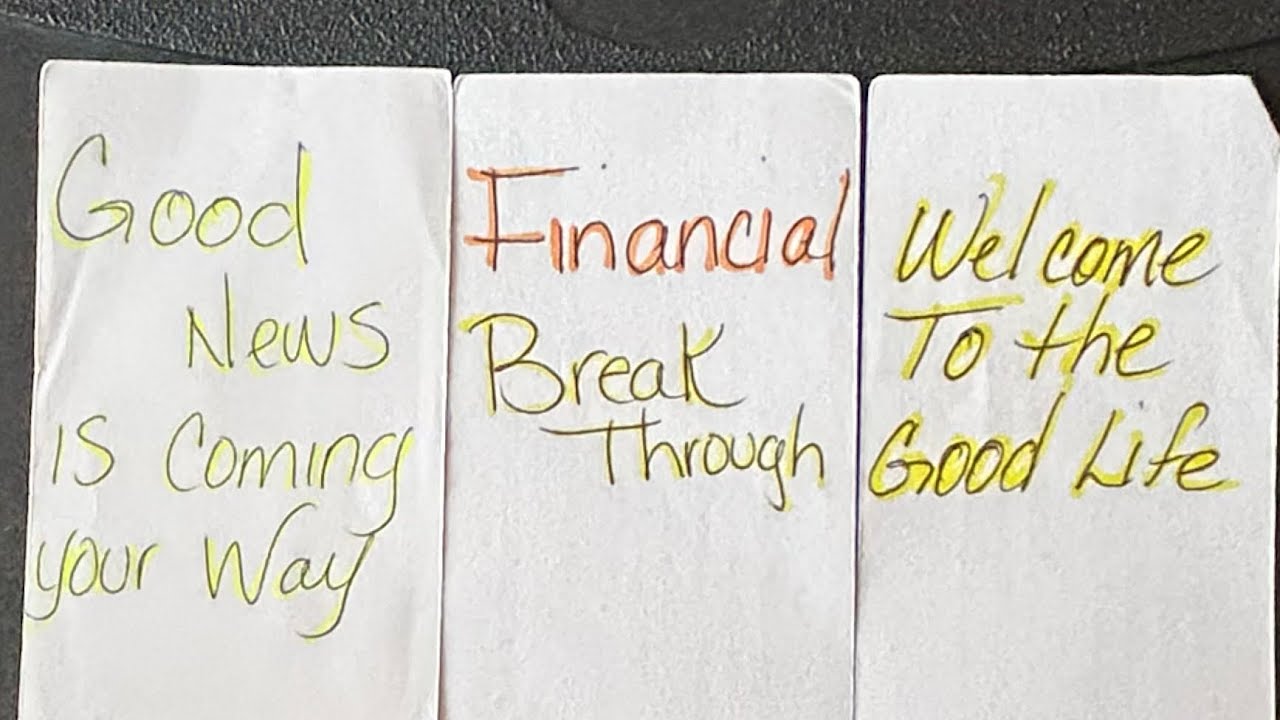 Good
News
is Coming
your Way
Financial
Break
Through
Welcome
To the
Good Life